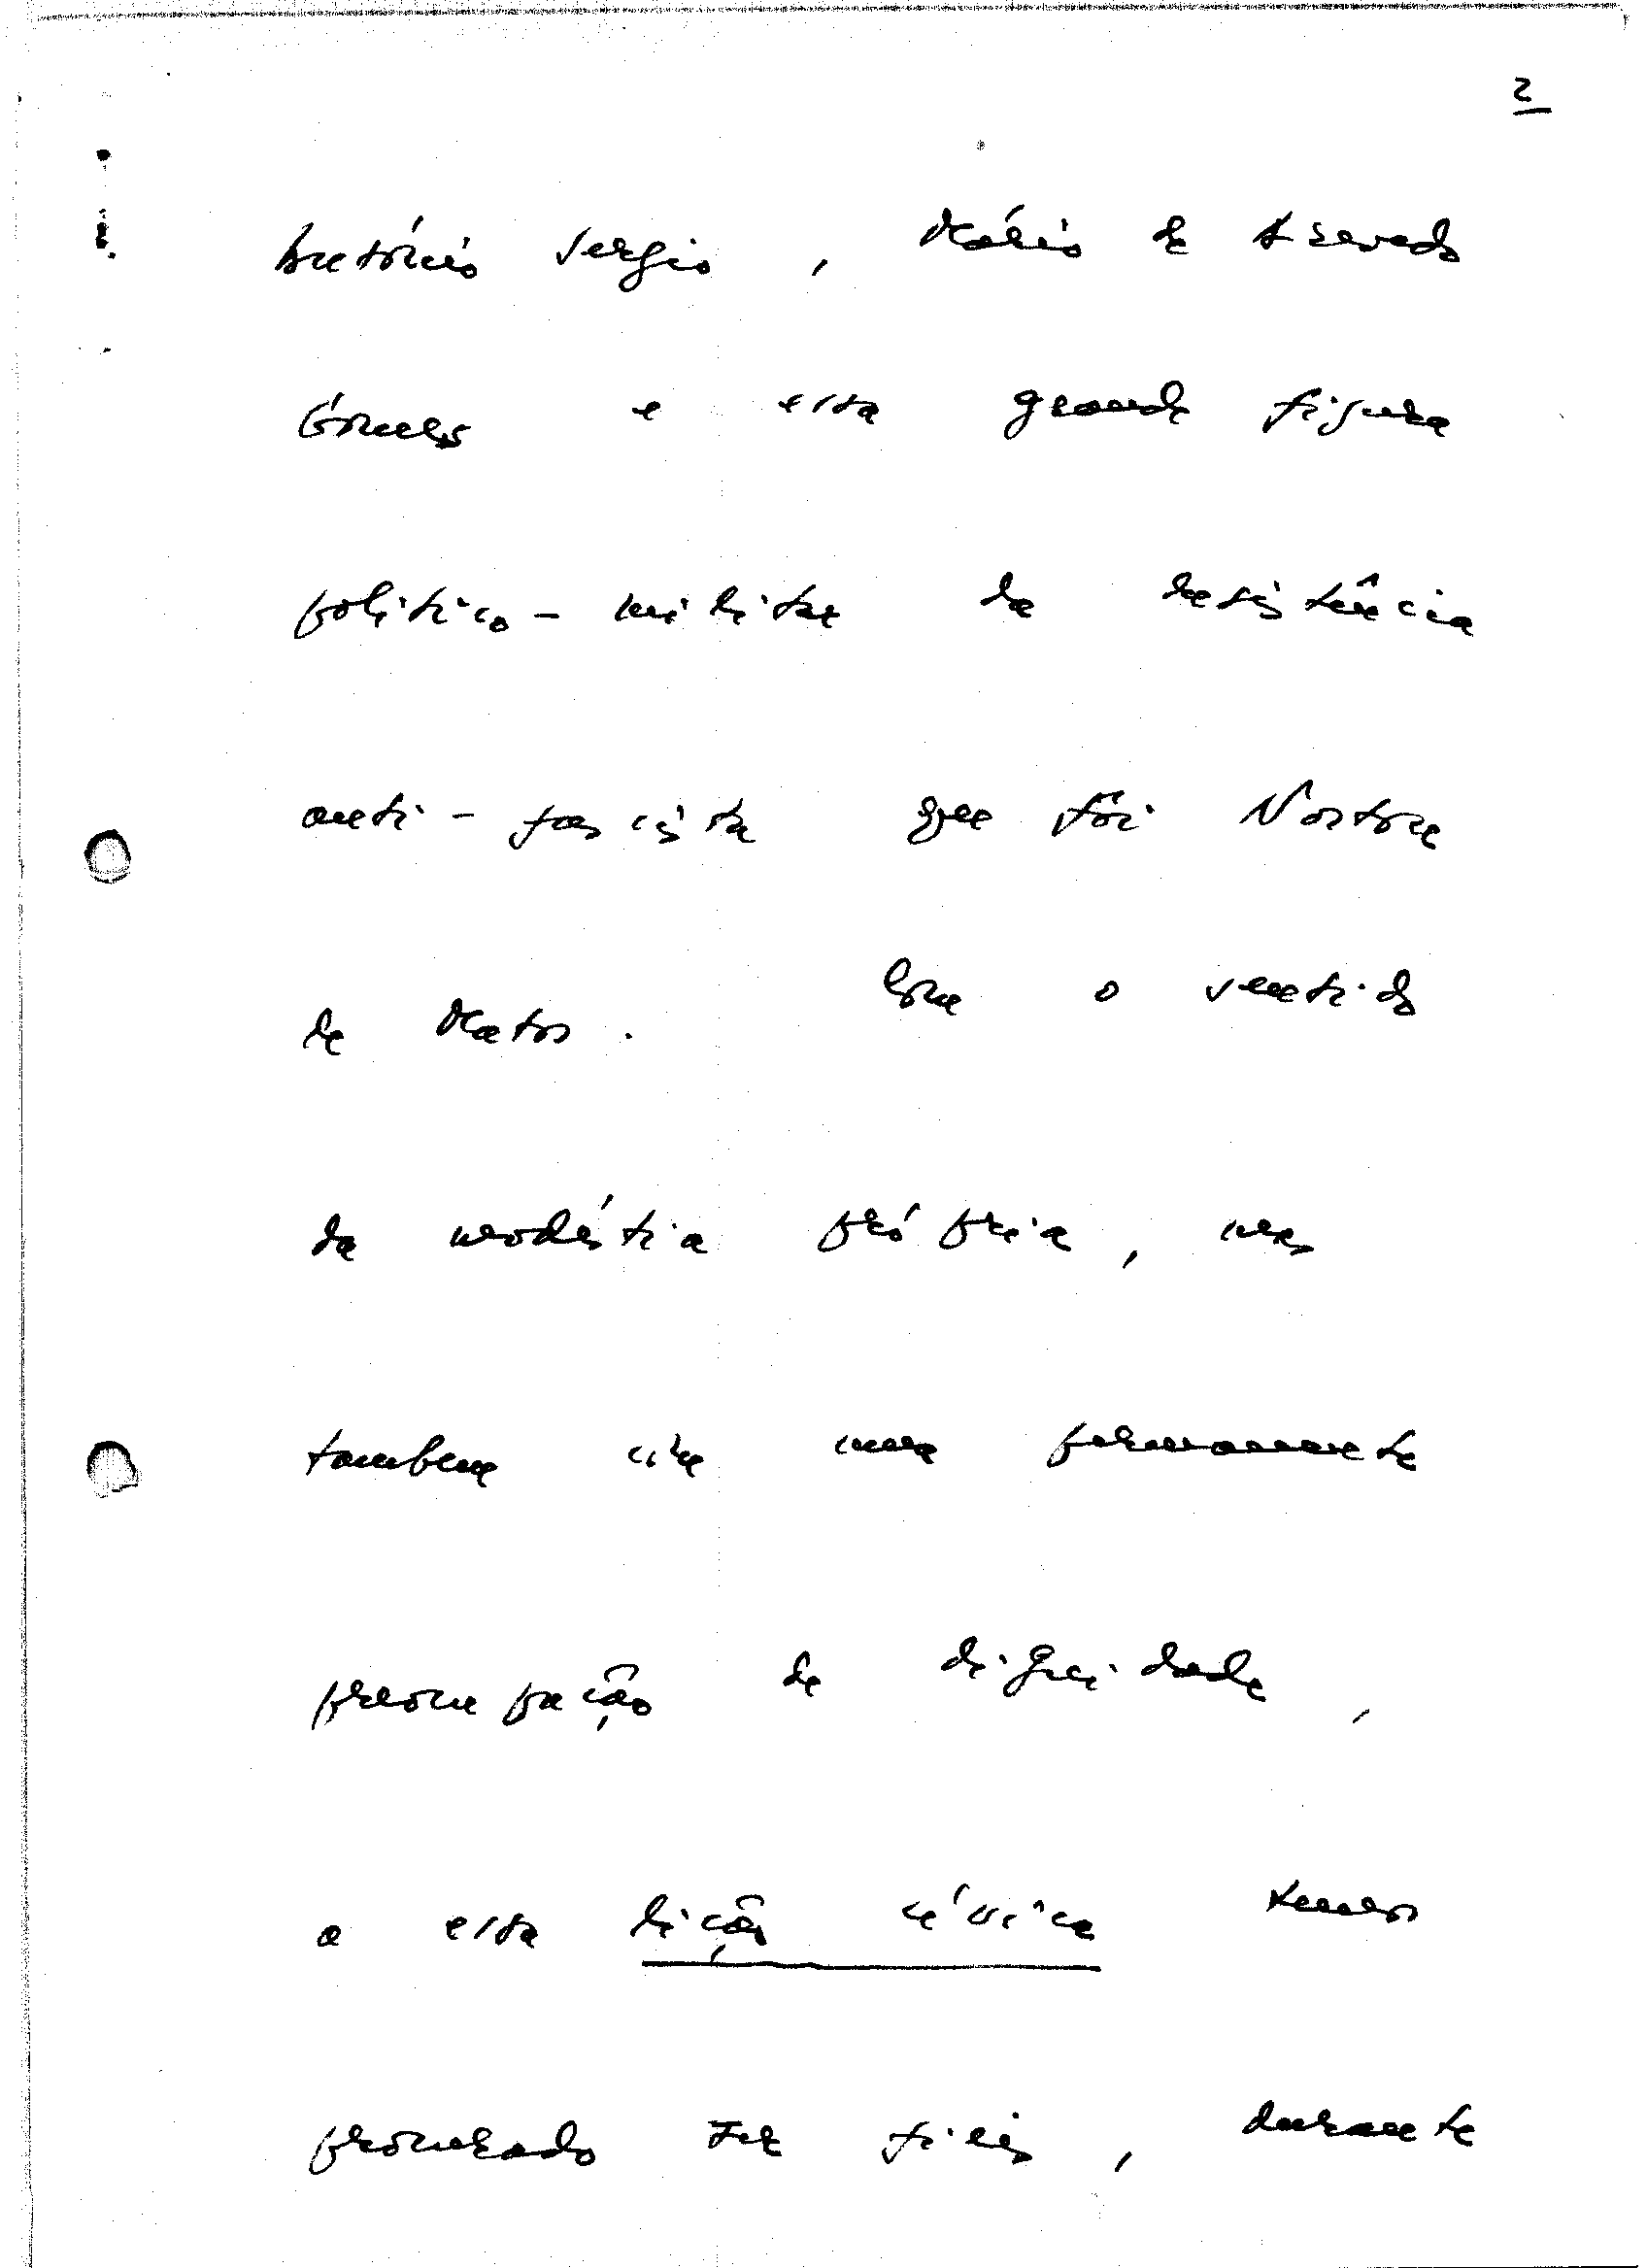 2
António Sergio, Mário de Azevedo
Gómes e essa grande figura
politico-militar da resistência
anti-fascista que foi Norton
de Matos. Com o sentido
da modéstia própria, mas
tambem com uma permanente
preocupação de dignidade,
a essa lição cívica temos
procurado ser fieis, durante